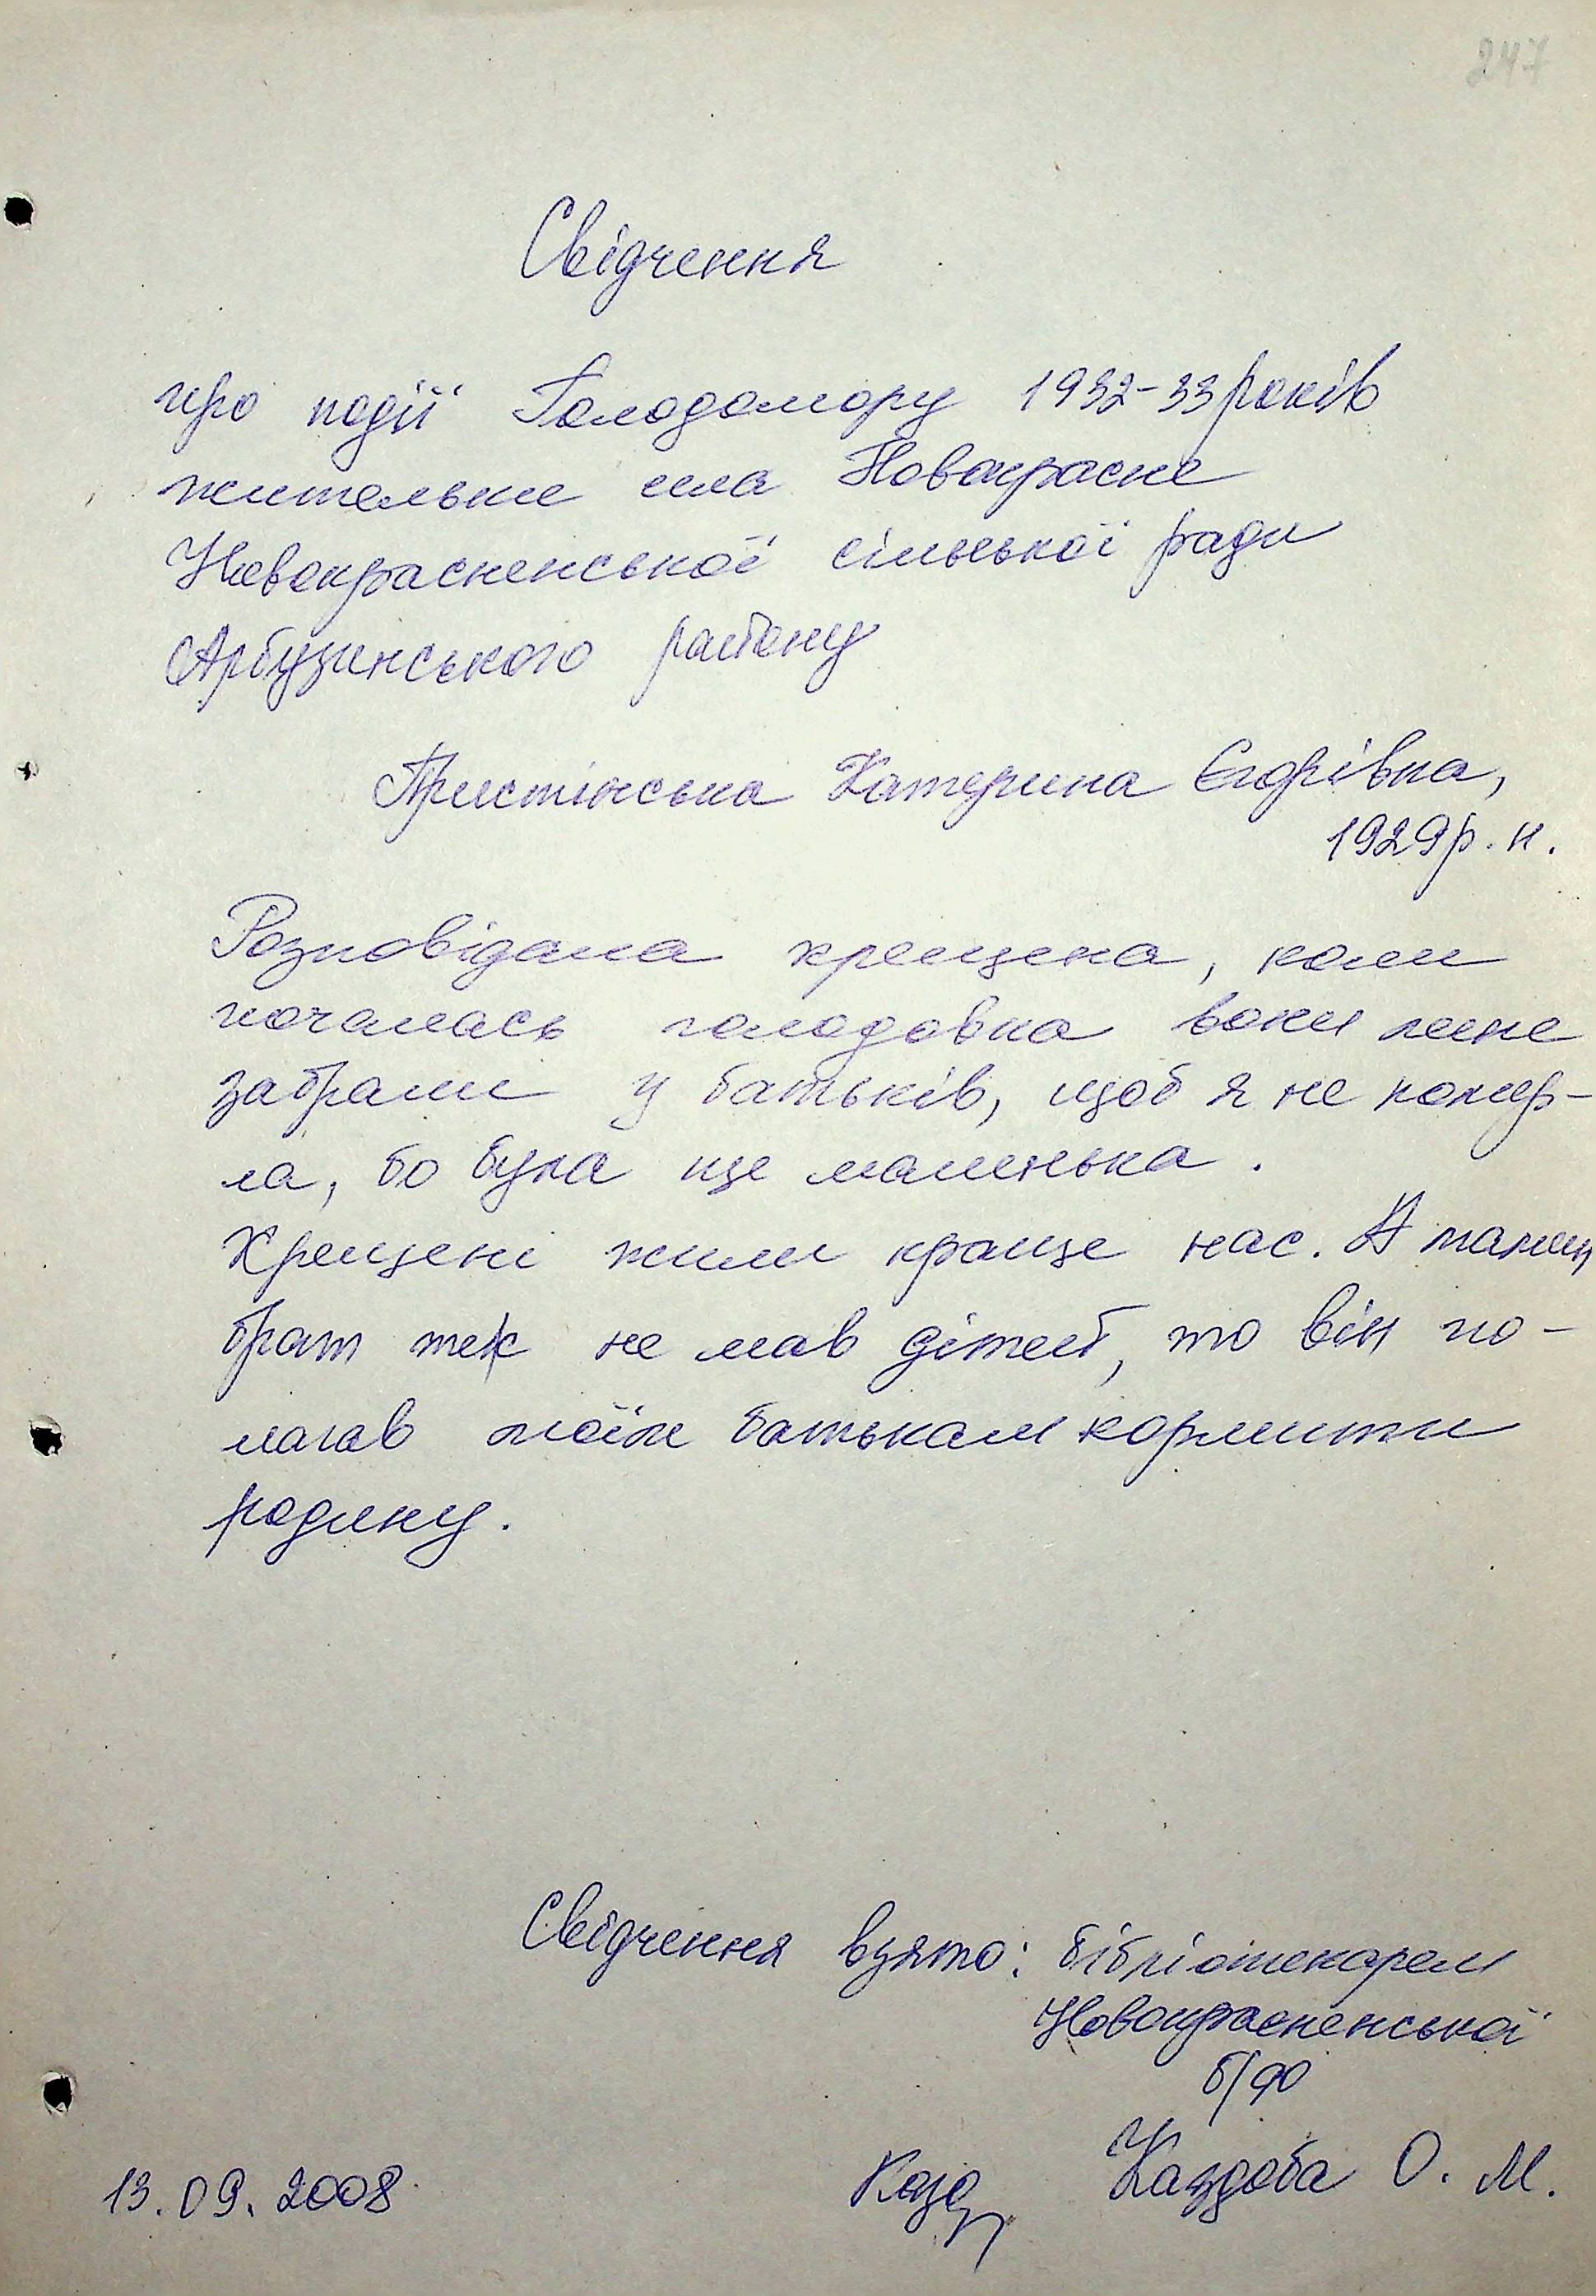 247
Свідчення
про події Голодомору 1932-33 років
жительки села Новокрасне
Новокрасненської сільської ради
Арбузинського району
Пристінська Катерина Єгорівна,
1929 р. н.
Розповідала хрещена, коли
почалась голодовка вони мене
забрали у батьків, щоб я не помер-
ла, бо була ще маленька.
Хрещені жили краще нас. А мамин
брат теж не мав дітей, то він по-
магав моїм батькам кормити
родину.
Свідчення взято: бібліотекарем
Новокрасненської
б/ф
13.09.2008 Казд Каздоба О. М.